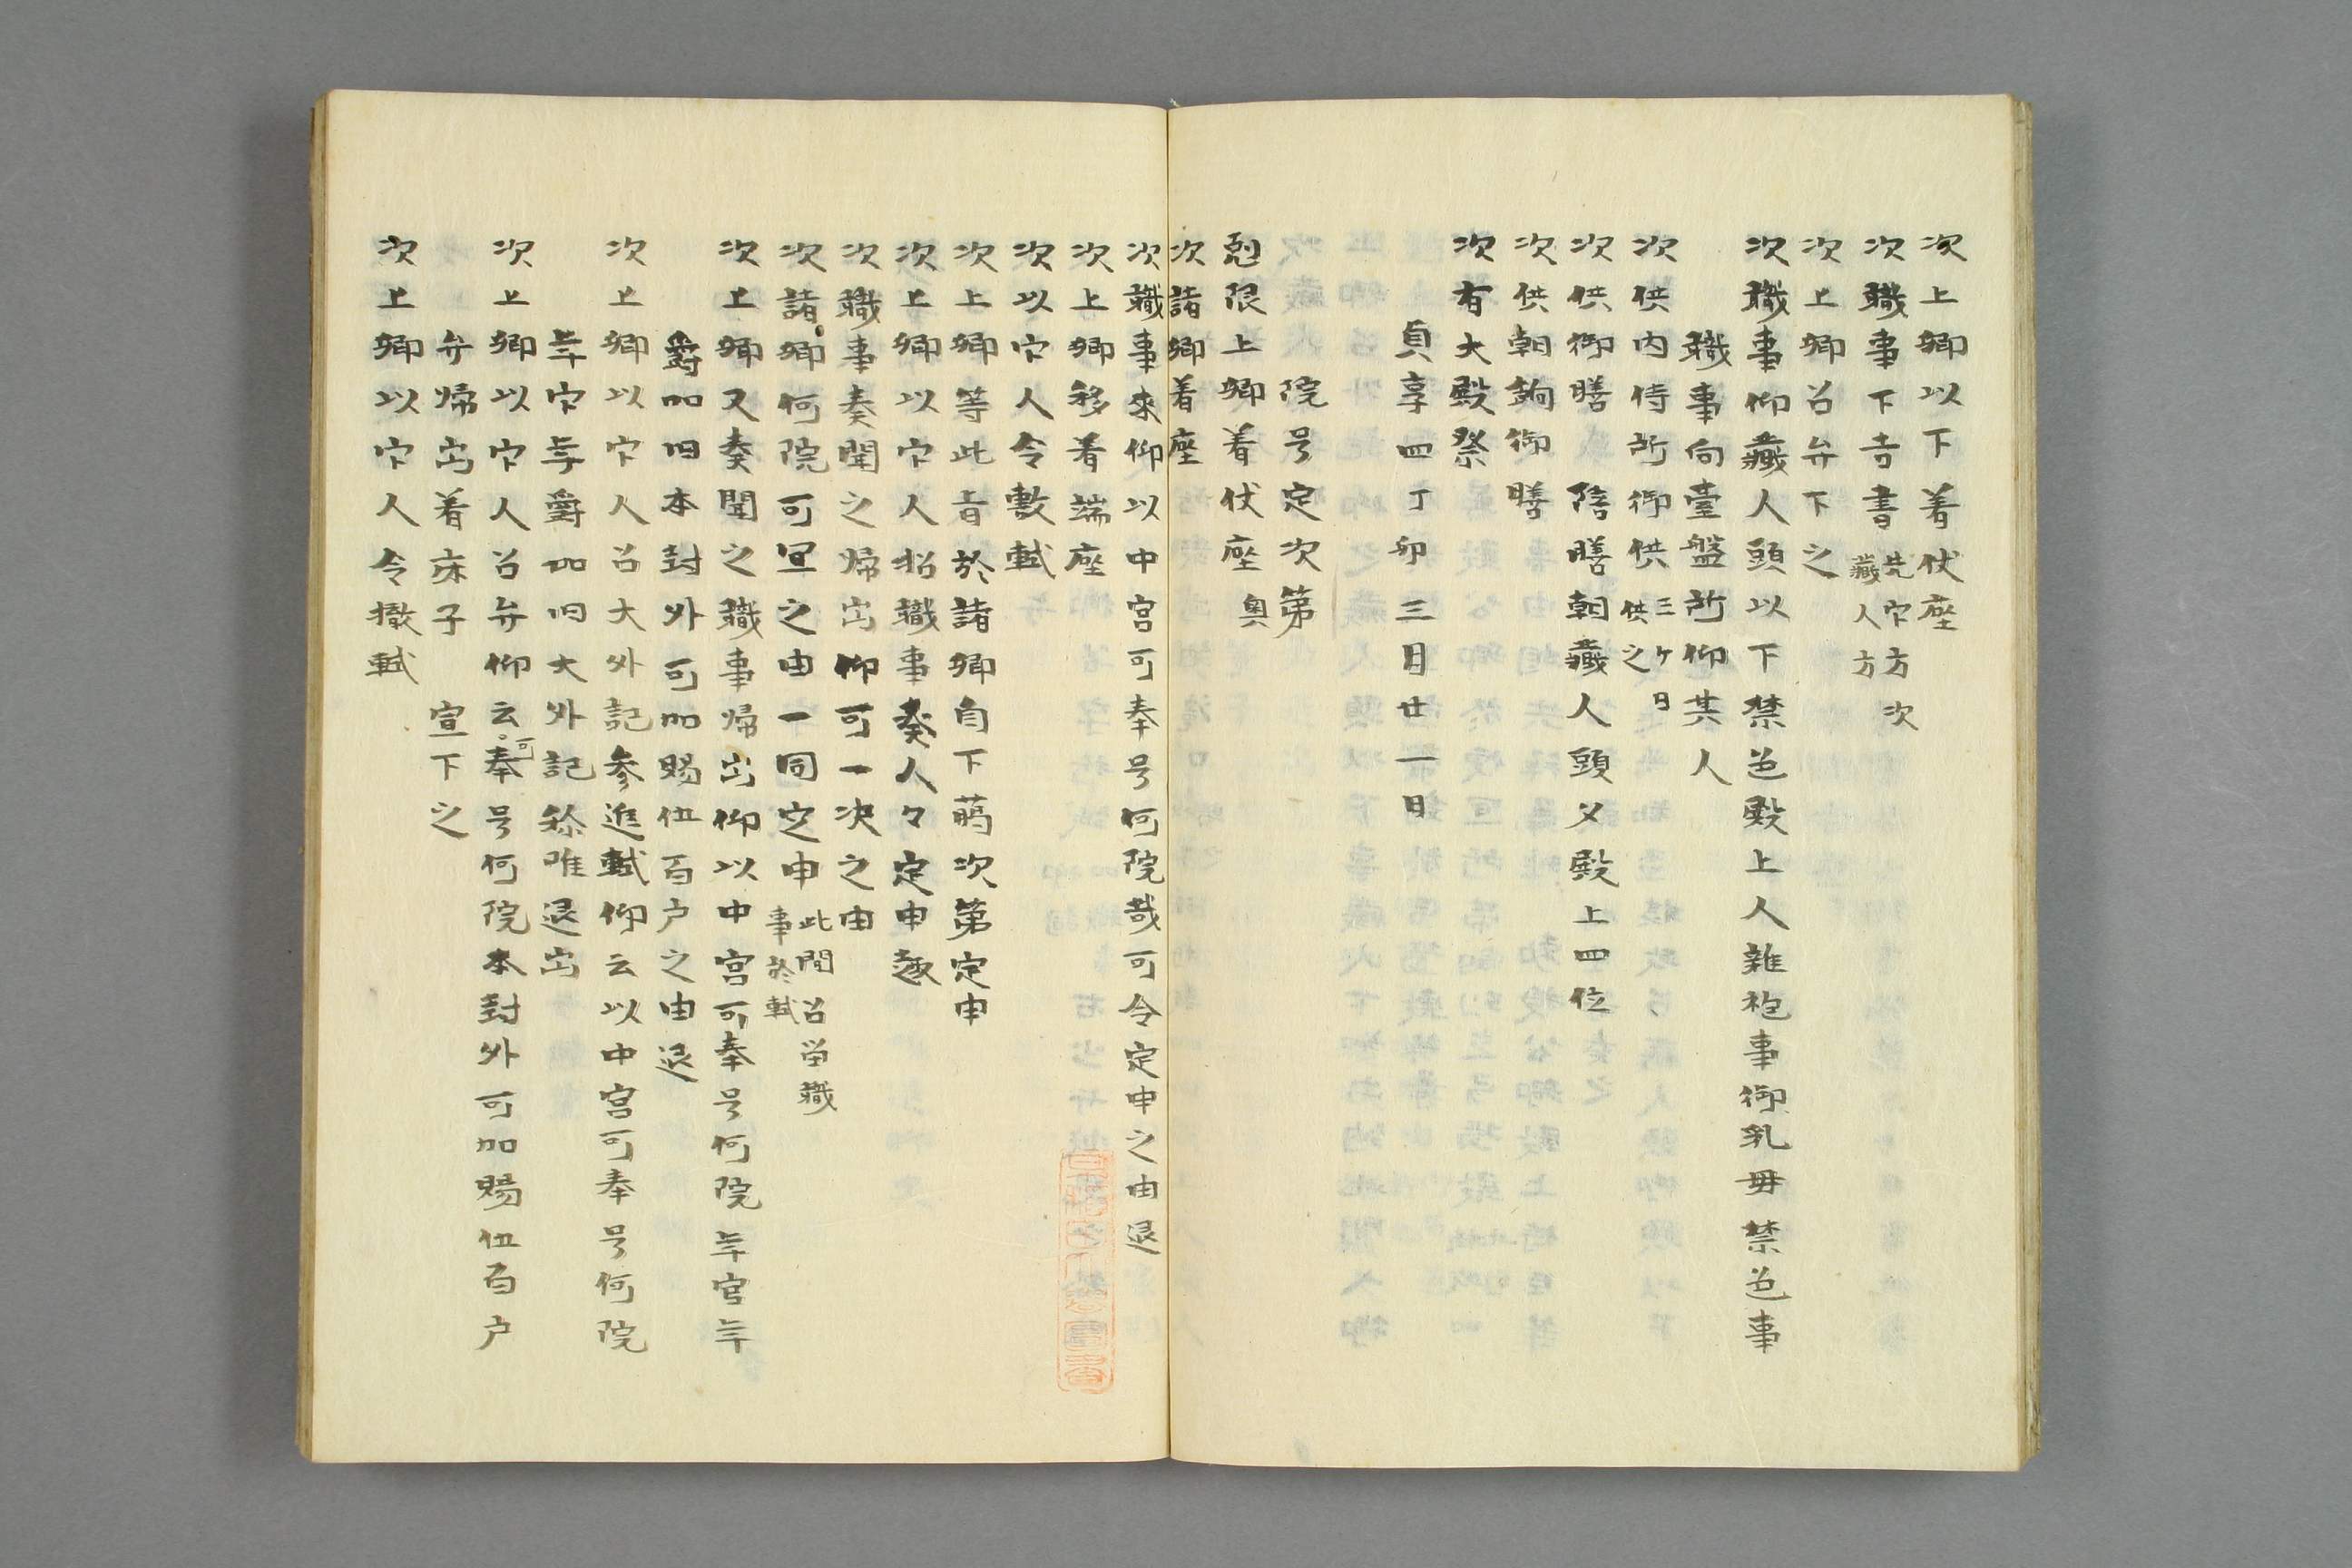 次上卿以下着伏座
次職事下吉書 先官方次蔵人方
次上卿召弁下之
次職事仰蔵人頭以下禁色殿上人雑袍事御乳母禁色事
職事向臺盤所仰其人
次供内侍所御供 三ケ日供之
次供御膳 陪膳朝蔵人頭父殿上四位
次供朝餉御膳
次有大殿祭
貞享四丁卯三月廿一日
院号定次第
剋限上卿着伏座 奥
次諸卿着座
次職事来仰以中宮可奉号何院哉可令定申之由退
次上卿移着端座
次以官人令敷軾
次上卿等此旨於諸卿自下﨟次第定申
次上卿以官人招職事奏人々定申趣
次職事奏聞之帰出仰可一决之由
次諸卿何院可宣之由一同定申 此間召留職事於軾
次上卿又奏聞之職事帰出仰以中宮可奉号何院年官年
爵如旧本封外可加賜伍百戸之由退
次上卿以官人召大外記参進軾仰云以中宮可奉号何院
年官年爵如旧大外記称唯退出
次上卿以官人召弁仰云可奉号何院本封外可加賜伍百戸
弁帰出着床子 宣下之
次上卿以官人令撤軾